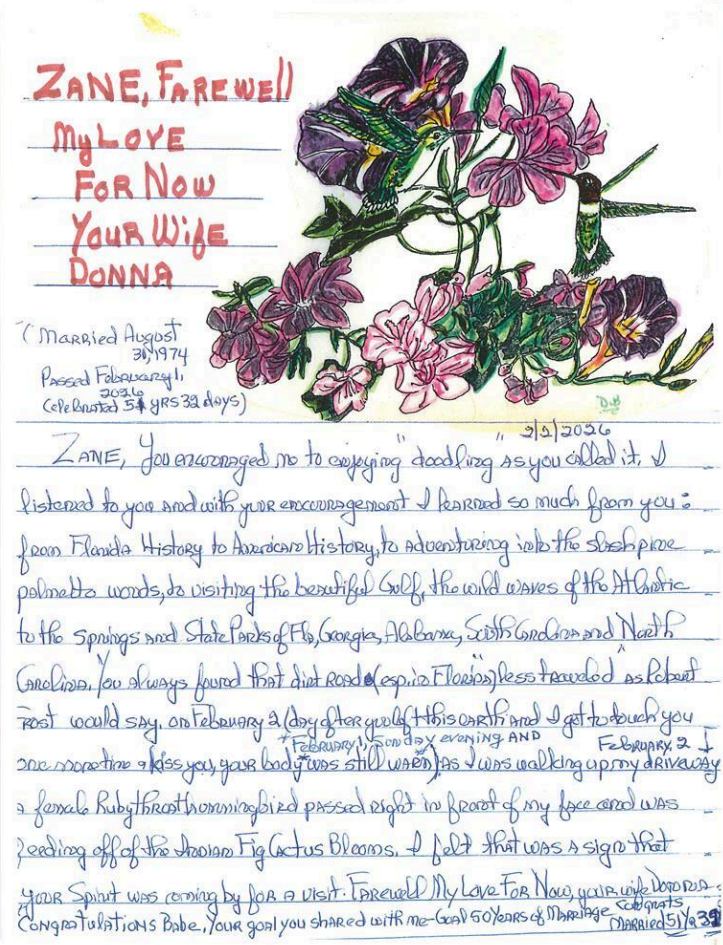 ZANE, FAREWELL
My LOVE
FOR NOW
YOUR WifE
DONNA
(MARRied August
31, 1974
PASSED FebRUARy 1,
2026
Celebrated 51 yRS 32 days)
DB
2/2/2026
ZANE, You encouraged me to enjoying "doodling" AS you called it. I
listened to you AND with your encouragement I learned so much from you:
from Florida History to American History, to adventuring into the slash pine
palmetto woods, to visiting the beautiful Gulf, the wild waves of the Atlantic
to the Springs and State Parks of Fla, Georgia, Alabama, South Carolina and North
Carolina. You always found that dirt road (esp. in Florida) "less traveled" as Robert
Frost would say. On February 2 (day after you left this earth and I got to touch you
*February 1, Sunday evening AND
February 2
one more time & kiss you, your body *was still warm) as I was walking up my driveway
a female Rubythroat hummingbird passed right in front of my face and was
feeding off of the Indian Fig Cactus Blooms. I felt that was a sign that
your Spirit was coming by for a visit. Farewell My Love For Now, your wife Donna
Congratulations Babe, Your goal you shared with me-Goal 50 Years of Marriage
Congrats
Married 51 Yr 32